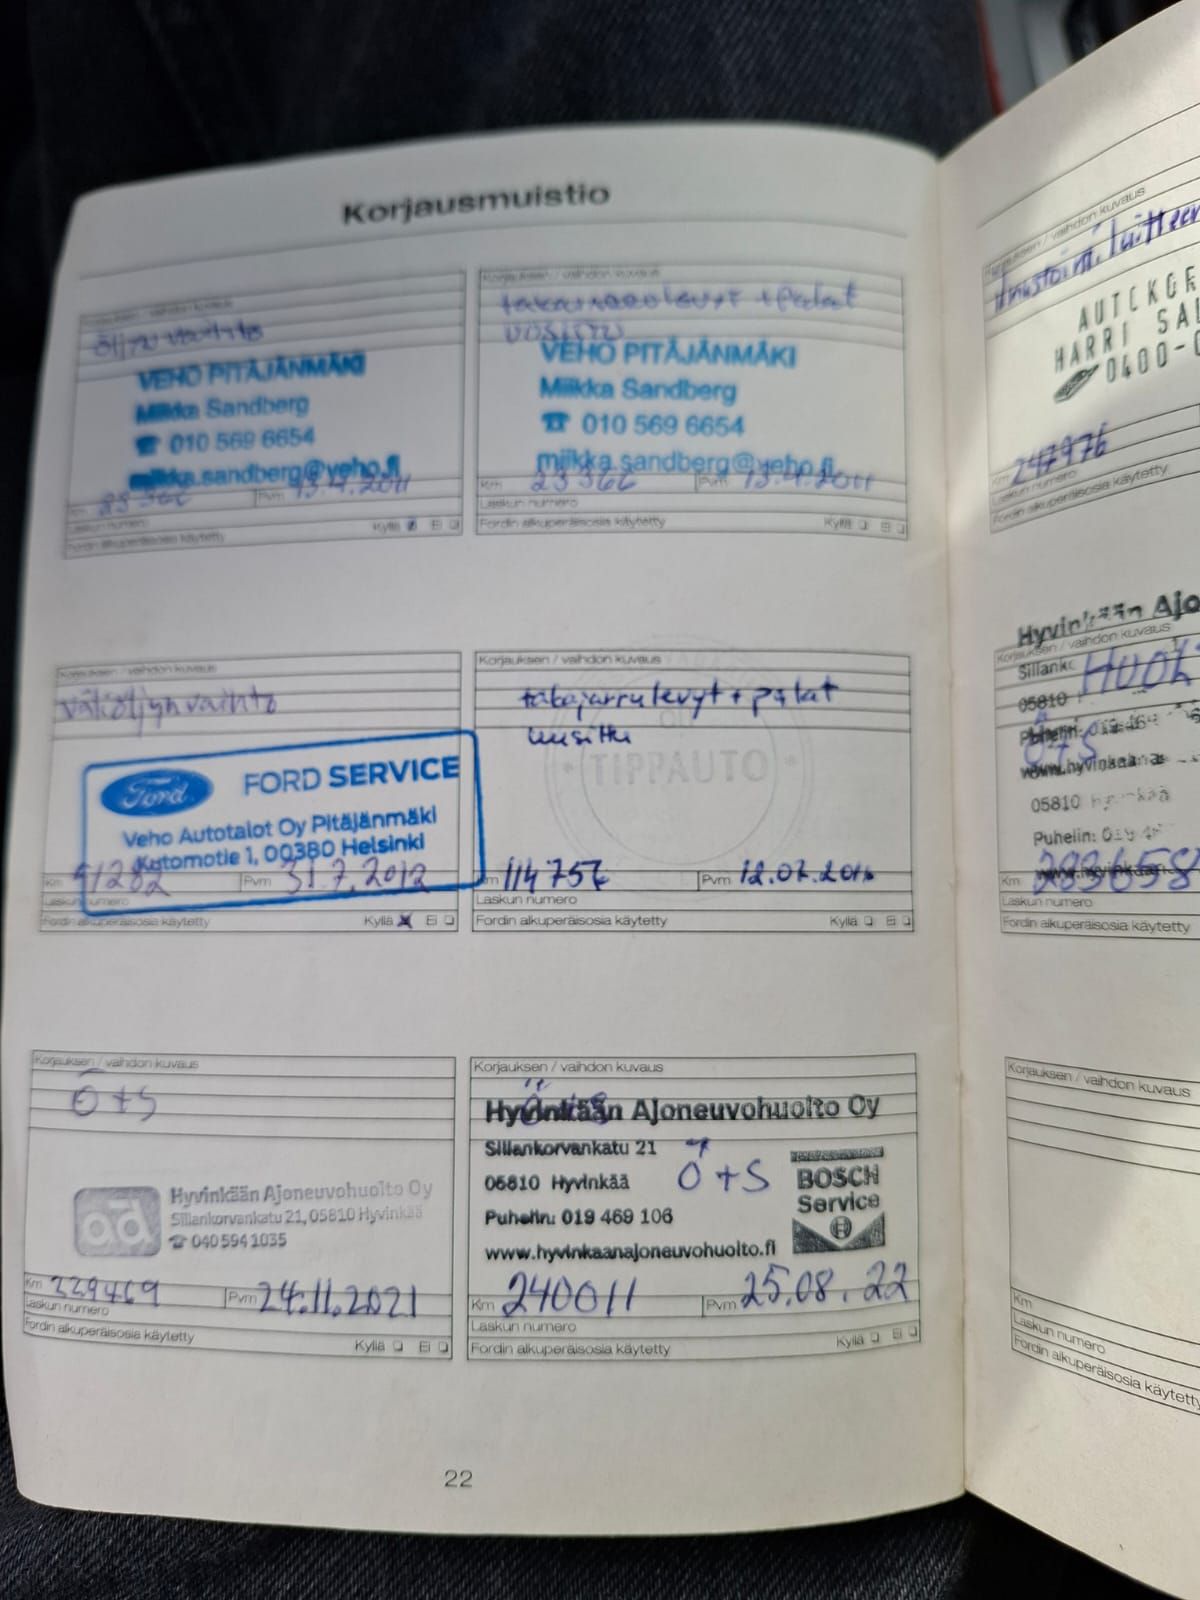 Korjausmuistio
Korjauksen / vaihdon kuvaus
öljyn vaihto
VEHO PITÄJÄNMÄKI
Miikka Sandberg
☎ 010 569 6654
miikka.sandberg@veho.fi
Km 23366 Pvm 13.4.2011
Laskun numero
Kyllä Ei
Fordin alkuperäisosia käytetty
Korjauksen / vaihdon kuvaus
levyt + palat
VEHO PITÄJÄNMÄKI
Miikka Sandberg
☎ 010 569 6654
miikka.sandberg@veho.fi
Km 23366 Pvm 13.4.2011
Laskun numero
Fordin alkuperäisosia käytetty Kyllä Ei
Korjauksen / vaihdon kuvaus
väliöljynvaihto
Ford FORD SERVICE
Veho Autotalot Oy Pitäjänmäki
Kutomotie 1, 00380 Helsinki
Km 51282 Pvm 31.7.2012
Laskun numero
Fordin alkuperäisosia käytetty Kyllä Ei
Korjauksen / vaihdon kuvaus
takajarrulevyt + palat
uusittu
TIPPAUTO
Km 114756 Pvm 12.02.
Laskun numero
Fordin alkuperäisosia käytetty Kyllä Ei
Korjauksen / vaihdon kuvaus
Ö + S
ad Hyvinkään Ajoneuvohuolto Oy
Sillankorvankatu 21, 05810 Hyvinkää
☎ 040 594 1035
Km 229469 Pvm 24.11.2021
Laskun numero
Fordin alkuperäisosia käytetty Kyllä Ei
Korjauksen / vaihdon kuvaus
Hyvinkään Ajoneuvohuolto Oy
Sillankorvankatu 21
05810 Hyvinkää
Ö + S
BOSCH
Service
Puhelin: 019 469 106
www.hyvinkaanajoneuvohuolto.fi
Km 240011 Pvm 25.08.22
Laskun numero
Fordin alkuperäisosia käytetty Kyllä Ei
22
Korjauksen / vaihdon kuvaus
HARRI
0400-
Km 247976
Laskun numero
Fordin alkuperäisosia käytetty
Hyvinkään Ajo
Korjauksen / vaihdon kuvaus
05810
Ö + S
05810
Puhelin:
Km 283658
Laskun numero
Fordin alkuperäisosia käytetty
Korjauksen / vaihdon kuvaus
Km
Laskun numero
Fordin alkuperäisosia käytetty